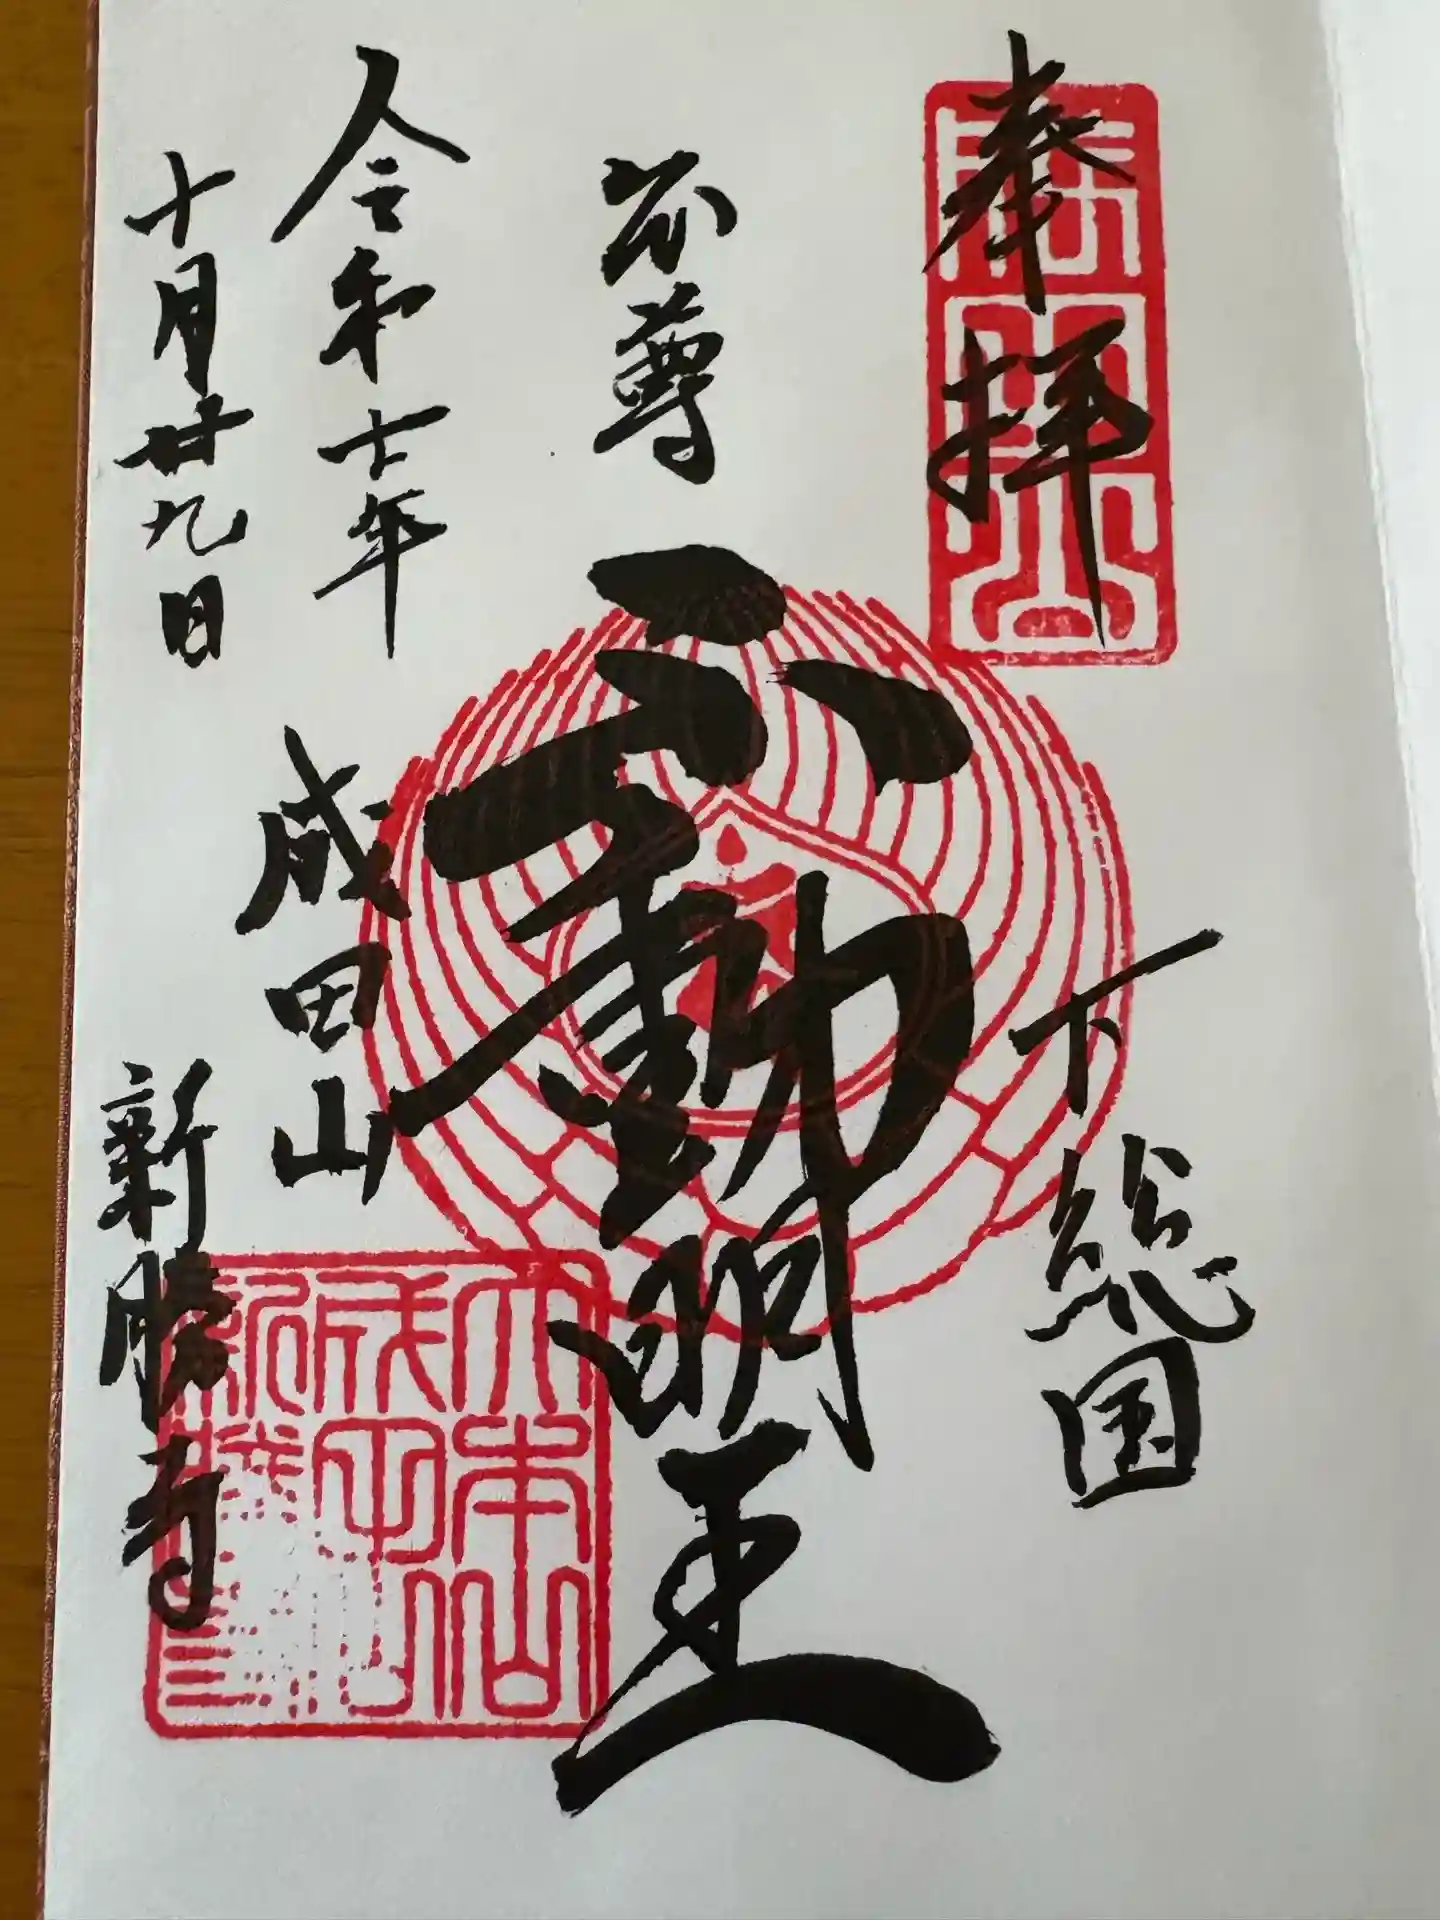 奉拝
成田山
下総国
本尊
不動明王
令和七年
十月廿九日
成田山
新勝寺
大本山
成田山